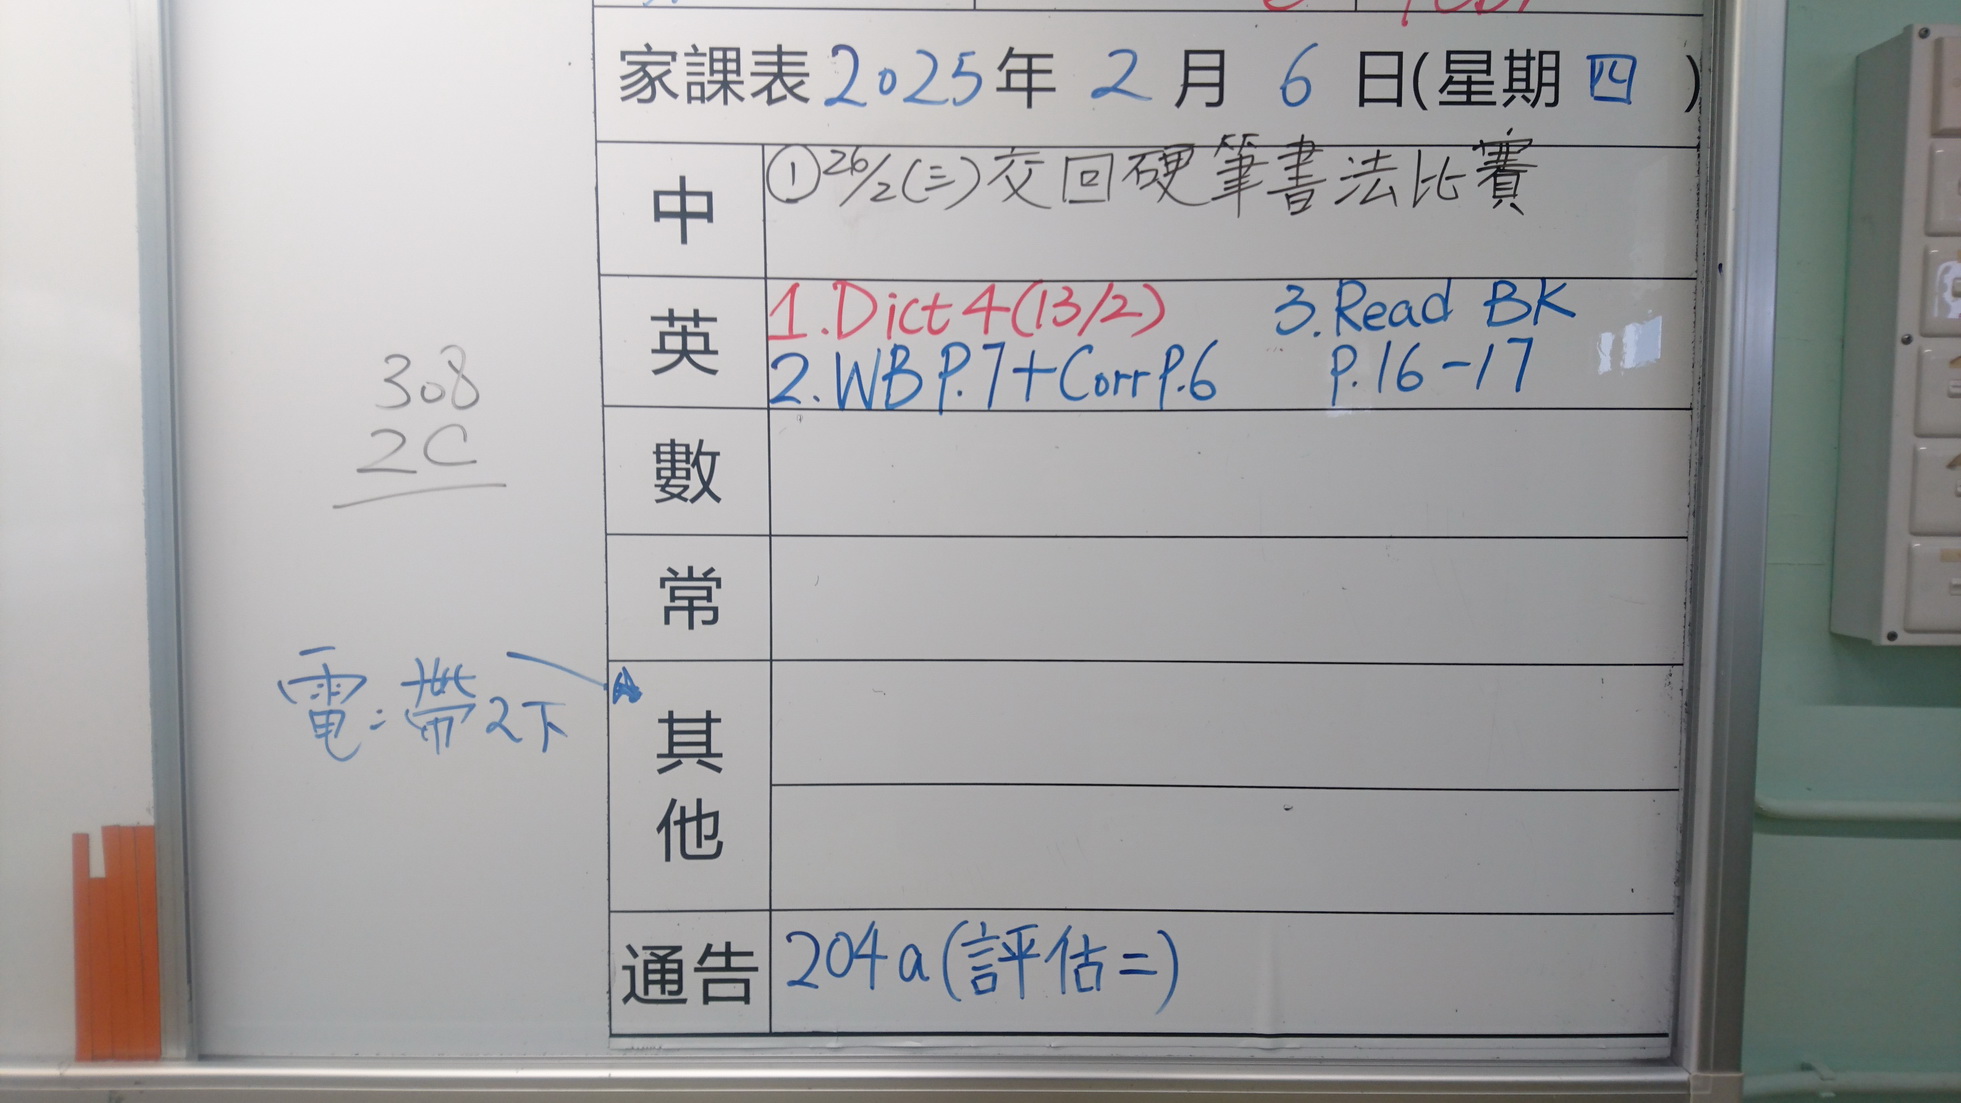 家課表2025年 2 月 6 日(星期四 )
中
①26/2(三)交回硬筆書法比賽
英
1.Dict 4(13/2)
2.WB P.7+Corr P.6
3.Read BK
P.16-17
數
常
其他
通告
204a(評估二)
308
2C
電:帶2下